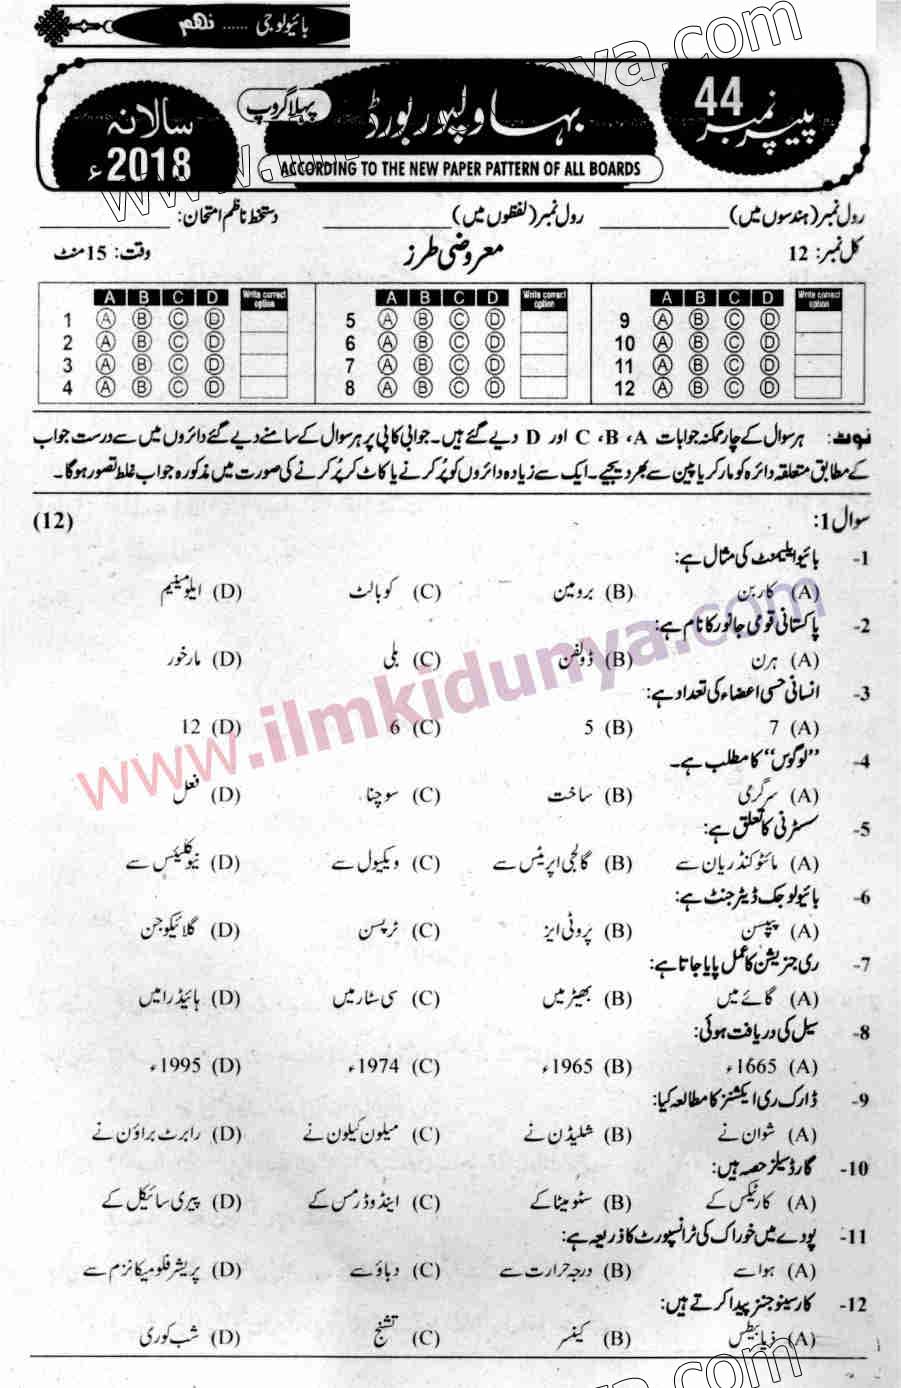 بائیولوجی ...... نہم
پیپر نمبر 44
بہاولپور بورڈ
پہلا گروپ
سالانہ 2018ء
ACCORDING TO THE NEW PAPER PATTERN OF ALL BOARDS
رول نمبر (ہندسوں میں) ____________ رول نمبر (لفظوں میں) ____________ دستخط ناظم امتحان: ____________
کل نمبر: 12 معروضی طرز وقت: 15 منٹ
A B C D Write correct option A B C D Write correct option A B C D Write correct option
1 A B C D 5 A B C D 9 A B C D
2 A B C D 6 A B C D 10 A B C D
3 A B C D 7 A B C D 11 A B C D
4 A B C D 8 A B C D 12 A B C D
نوٹ: ہر سوال کے چار ممکنہ جوابات A، B، C اور D دیے گئے ہیں۔ جوابی کاپی پر ہر سوال کے سامنے دیے گئے دائروں میں سے درست جواب
کے مطابق متعلقہ دائرہ کو مارکر یا پین سے بھر دیجیے۔ ایک سے زیادہ دائروں کو پُر کرنے یا کاٹ کر پُر کرنے کی صورت میں مذکورہ جواب غلط تصور ہوگا۔
سوال 1: (12)
1- بائیو ایلیمنٹ کی مثال ہے:
(A) کاربن (B) برومین (C) کوبالٹ (D) ایلومینیم
2- پاکستانی قومی جانور کا نام ہے:
(A) ہرن (B) ڈولفن (C) بلی (D) مارخور
3- انسانی حسی اعضاء کی تعداد ہے:
(A) 7 (B) 5 (C) 6 (D) 12
4- ”لوگوس“ کا مطلب ہے۔
(A) سرگرمی (B) ساخت (C) سوچنا (D) فعل
5- سسٹرنی کا تعلق ہے:
(A) مائٹوکنڈریان سے (B) گالجی اپریٹس سے (C) ویکیول سے (D) نیوکلیئس سے
6- بائیولوجک ڈیٹرجنٹ ہے:
(A) پیپسن (B) پروٹی ایز (C) ٹرپسن (D) گلائیکوجن
7- ری جنریشن کا عمل پایا جاتا ہے:
(A) گائے میں (B) بھیڑ میں (C) سی سٹار میں (D) ہائیڈرا میں
8- سیل کی دریافت ہوئی:
(A) 1665ء (B) 1965ء (C) 1974ء (D) 1995ء
9- ڈارک ری ایکشنز کا مطالعہ کیا:
(A) شوان نے (B) شلیڈن نے (C) میلون کیلون نے (D) رابرٹ براؤن نے
10- گارڈ سیلز حصہ ہیں:
(A) کارٹیکس کے (B) سٹومیٹا کے (C) اینڈوڈرمس کے (D) پیری سائیکل کے
11- پودے میں خوراک کی ٹرانسپورٹ کا ذریعہ ہے:
(A) ہوا سے (B) درجہ حرارت سے (C) دباؤ سے (D) پریشر فلو میکانزم سے
12- کارسینوجنز پیدا کرتے ہیں:
(A) ذیابیطس (B) کینسر (C) تشنج (D) شب کوری
www.ilmkidunya.com